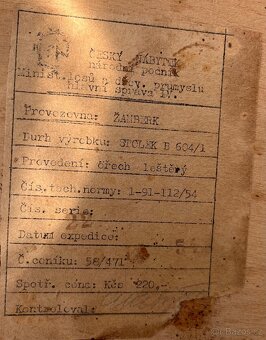 ČESKÝ NÁBYTEK
národní podnik
Minist.lesů a dřev. průmyslu
hlavní správa IV.
Provozovna: ŽAMBERK
Druh výrobku: STOLEK B 604/1
Provedení: ořech leštěný
Čís.tech.normy: 1-91-112/54
Čís. serie:
Datum expedice:
Č.ceníku: 58/471
Spotř. cena: Kčs 220,-
Kontroloval: